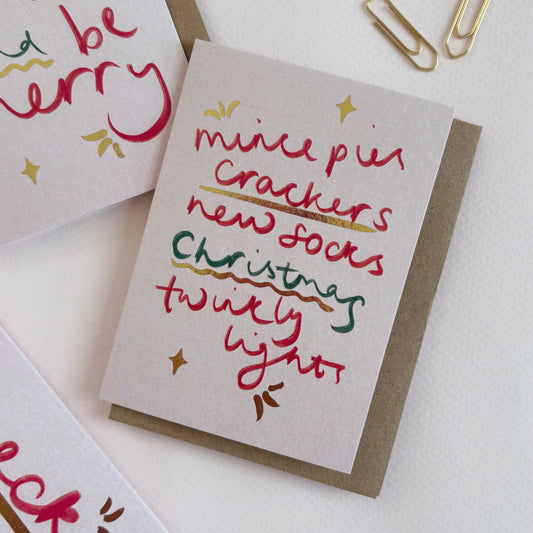 be
merry
mince pies
crackers
new socks
Christmas
twinkly
lights
eck